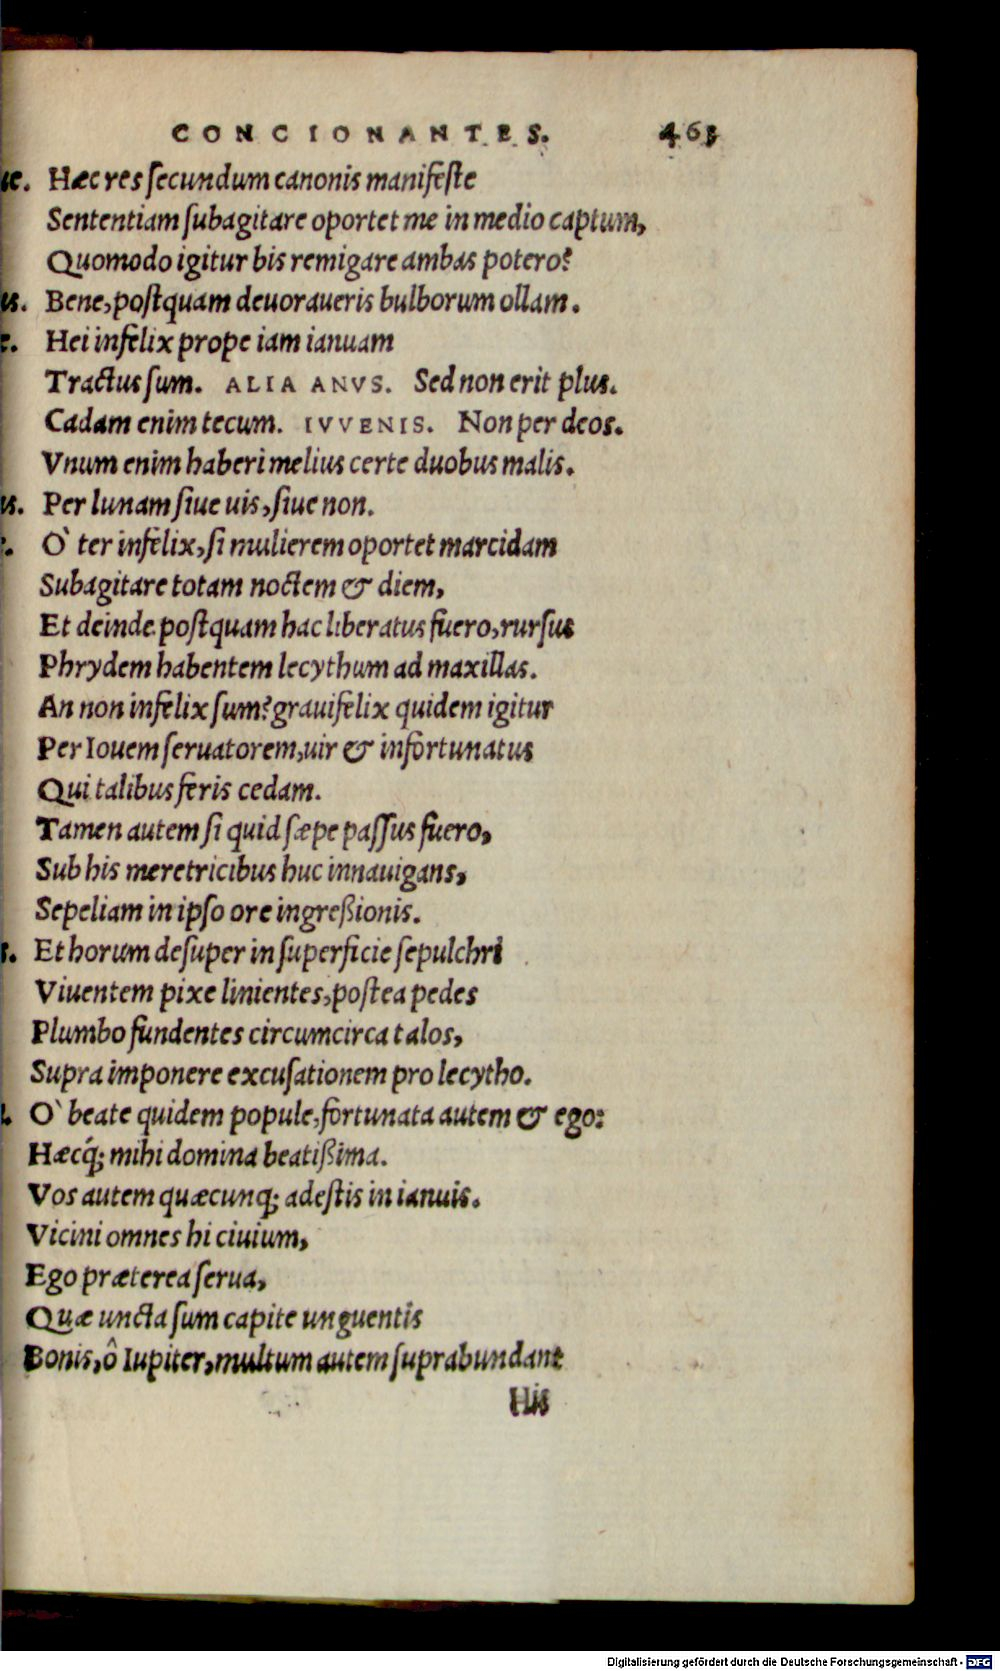 CONCIONANTES. 463
Hæc res ſecundum canonis manifeſte
Sententiam ſubagitare oportet me in medio captum,
Quomodo igitur bis remigare ambas potero?
Bene, poſtquam deuoraueris bulborum ollam.
Hei infelix prope iam ianuam
Tractus ſum. ALIA ANVS. Sed non erit plus.
Cadam enim tecum. IVVENIS. Non per deos.
Vnum enim haberi melius certe duobus malis.
Per lunam ſiue uis, ſiue non.
O` ter infelix, ſi mulierem oportet marcidam
Subagitare totam noctem & diem,
Et deinde poſtquam hac liberatus fuero, rurſus
Phrydem habentem lecythum ad maxillas.
An non infelix ſum? grauifelix quidem igitur
Per Iouem ſeruatorem, uir & infortunatus
Qui talibus feris cedam.
Tamen autem ſi quid ſæpe paſſus fuero,
Sub his meretricibus huc innauigans,
Sepeliam in ipſo ore ingreßionis.
Et horum deſuper in ſuperficie ſepulchri
Viuentem pixe linientes, poſtea pedes
Plumbo fundentes circumcirca talos,
Supra imponere excuſationem pro lecytho.
O` beate quidem popule, fortunata autem & ego:
Hæcq́; mihi domina beatißima.
Vos autem quæcunq; adeſtis in ianuis.
Vicini omnes hi ciuium,
Ego præterea ſerua,
Quæ uncta ſum capite unguentis
Bonis, ô Iupiter, multum autem ſuprabundant
His
Digitalisierung gefördert durch die Deutsche Forschungsgemeinschaft - DFG